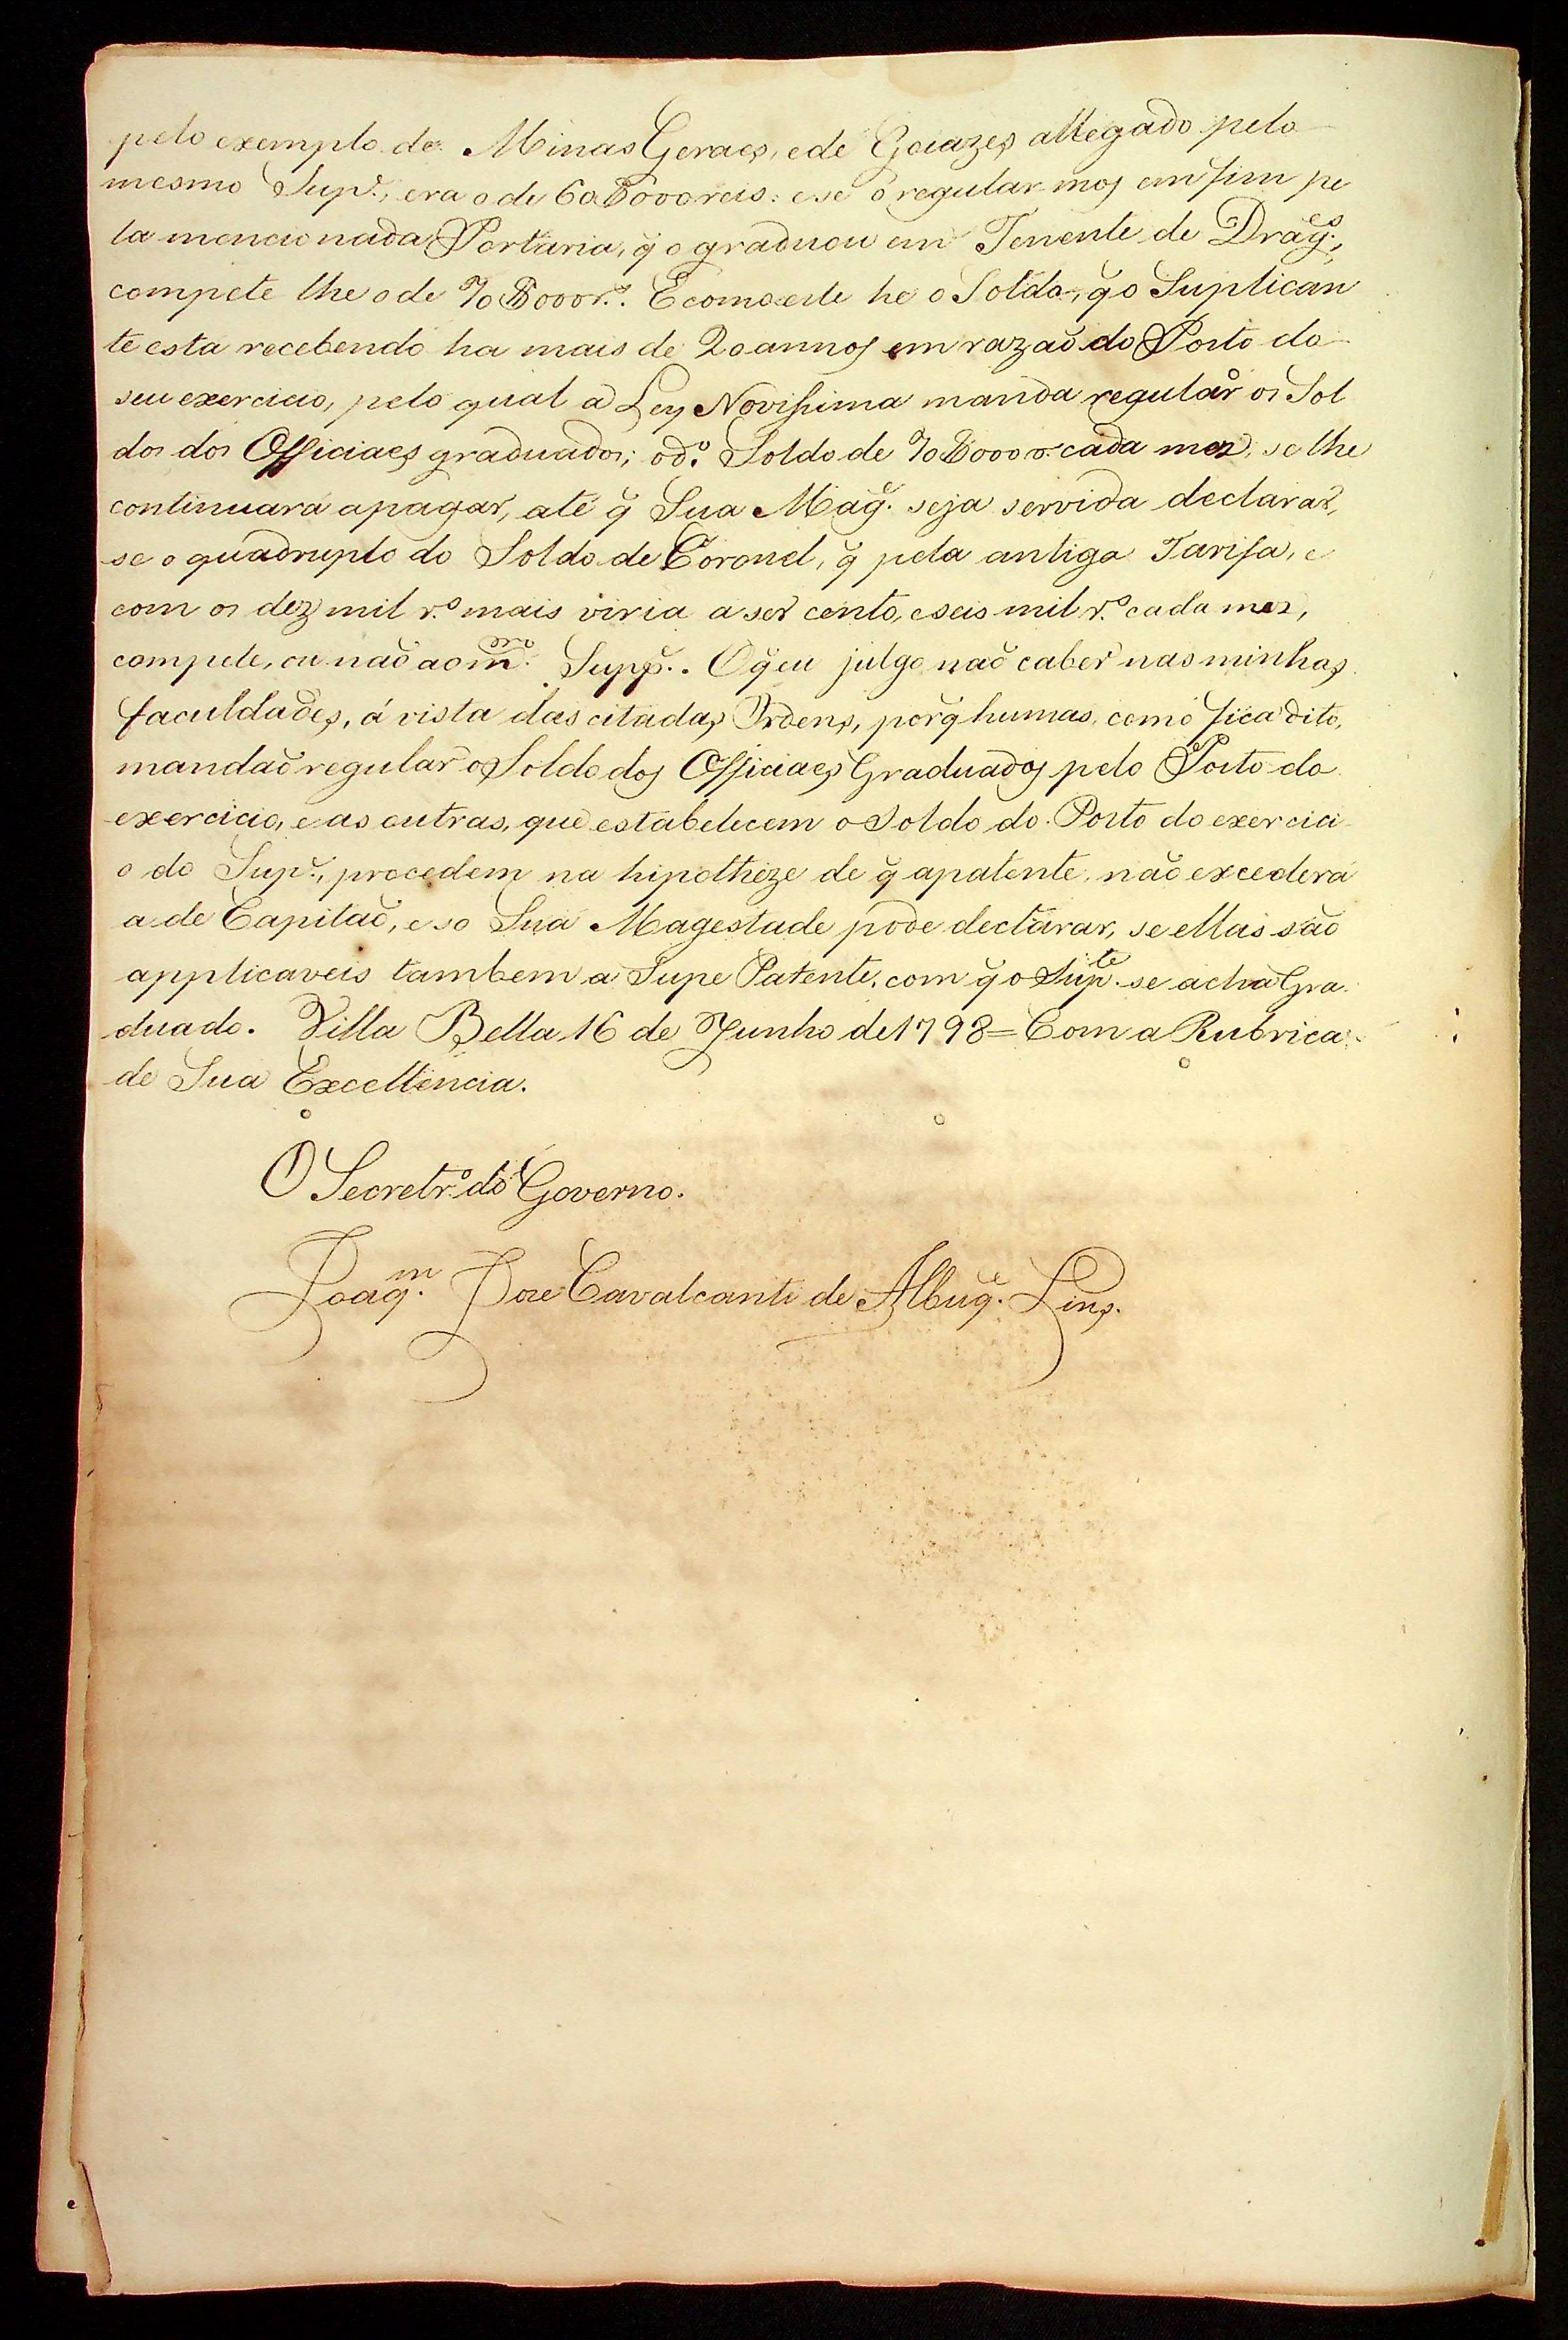 pelo exemplo de Minas Geraes, e de Goiazes allegado pelo
mesmo Sup.e, era o de 60$000 reis: e se o regularmos em fim pe
la mencionada Portaria, q̃ o graduou em Tenente de Drag.es,
compete lhe o de 70$000 r.s. E como este he o Soldo, q̃ o Suplican
te esta recebendo ha mais de 20 annos em razaõ do Posto do
seu exercicio, pelo qual a Ley Novissima manda regular os Sol
dos dos Officiaes graduados; o d.o Soldo de 70$000 r. cada mez, se lhe
continuará a pagar, até q̃ Sua Mag.e seja servida declarar,
se o quadruplo do Soldo de Coronel, q̃ pela antiga Tarifa, e
com os dez mil r.s mais viria a ser cento, e seis mil r.s cada mez,
compete, ou naõ ao m.mo Supp.e. O q̃ eu julgo naõ caber nas minhas
faculdades, á vista das citadas Ordens, porq̃ humas, como fica dito,
mandaõ regular o Soldo dos Officiaes Graduados pelo Posto do
exercicio, e as outras, que estabelecem o Soldo do Posto do exercici
o do Sup.e, procedem na hipotheze de q̃ a patente naõ excederá
a de Capitaõ, e so Sua Magestade pode declarar, se ellas saõ
applicaveis tambem a Supe Patente, com q̃ o Sup.te se acha Gra
duado. Villa Bella 16 de Junho de 1798 = Com a Rubrica
de Sua Excellencia.
O Secretr.o do Governo.
Joaq.m Jose Cavalcanti de Albuq.e Lins.